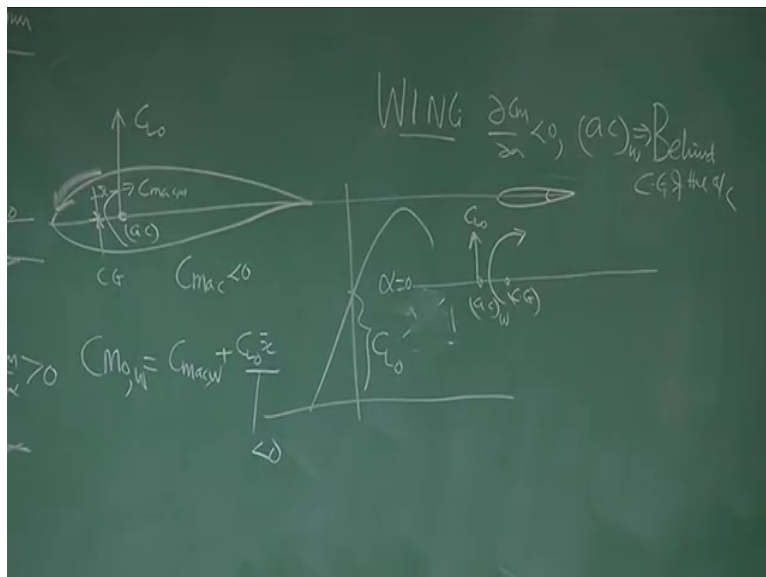 WING ∂Cm/∂α <0, (ac)w ⇒ Behind
C.G of the a/c
CL0
x̄ ⇒ Cmac,w
(ac)
CG
Cmac <0
CL0
α=0
(ac)w (CG)
CL0
>0
Cm0,w = Cmac,w + CL0 x̄
<0